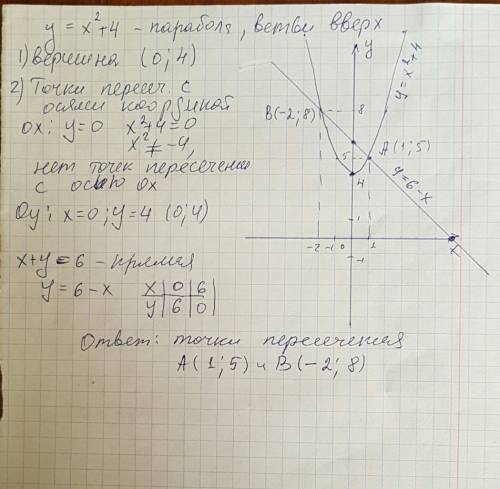 y = x²+4 – парабола, ветви вверх
1) вершина (0; 4)
2) Точки пересеч. с
осями координат
ox: y=0 x²+4=0
x² ≠ -4,
нет точек пересечения
с осью ox
Oy: x=0; y=4 (0; 4)
x+y=6 – прямая
y=6-x
x | 0 | 6
y | 6 | 0
Ответ: точки пересечения
A(1; 5) и B(-2; 8)
y
y=x²+4
B(-2; 8) 8
5 A(1; 5)
y=6-x
4
1
-2 -1 0 1 x
-1